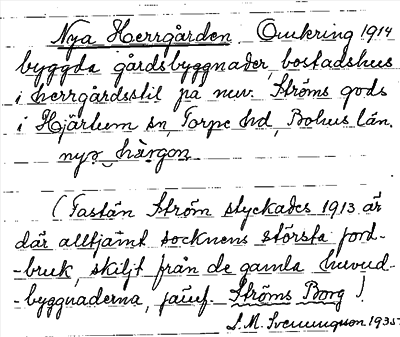 Nya Herrgården. Omkring 1914
byggda gårdsbyggnader, bostadshus
i herrgårdsstil på nuv. Ströms gods
i Hjärtum sn, Torpe hd, Bohus län.
nyɷ hærgɷn
(Fastän Ström styckades 1913 är
där alltjämt socknens största jord-
-bruk, skiljt från de gamla huvud-
-byggnaderna, jämf. Ströms Borg)!
S.M. Svenungson 1935